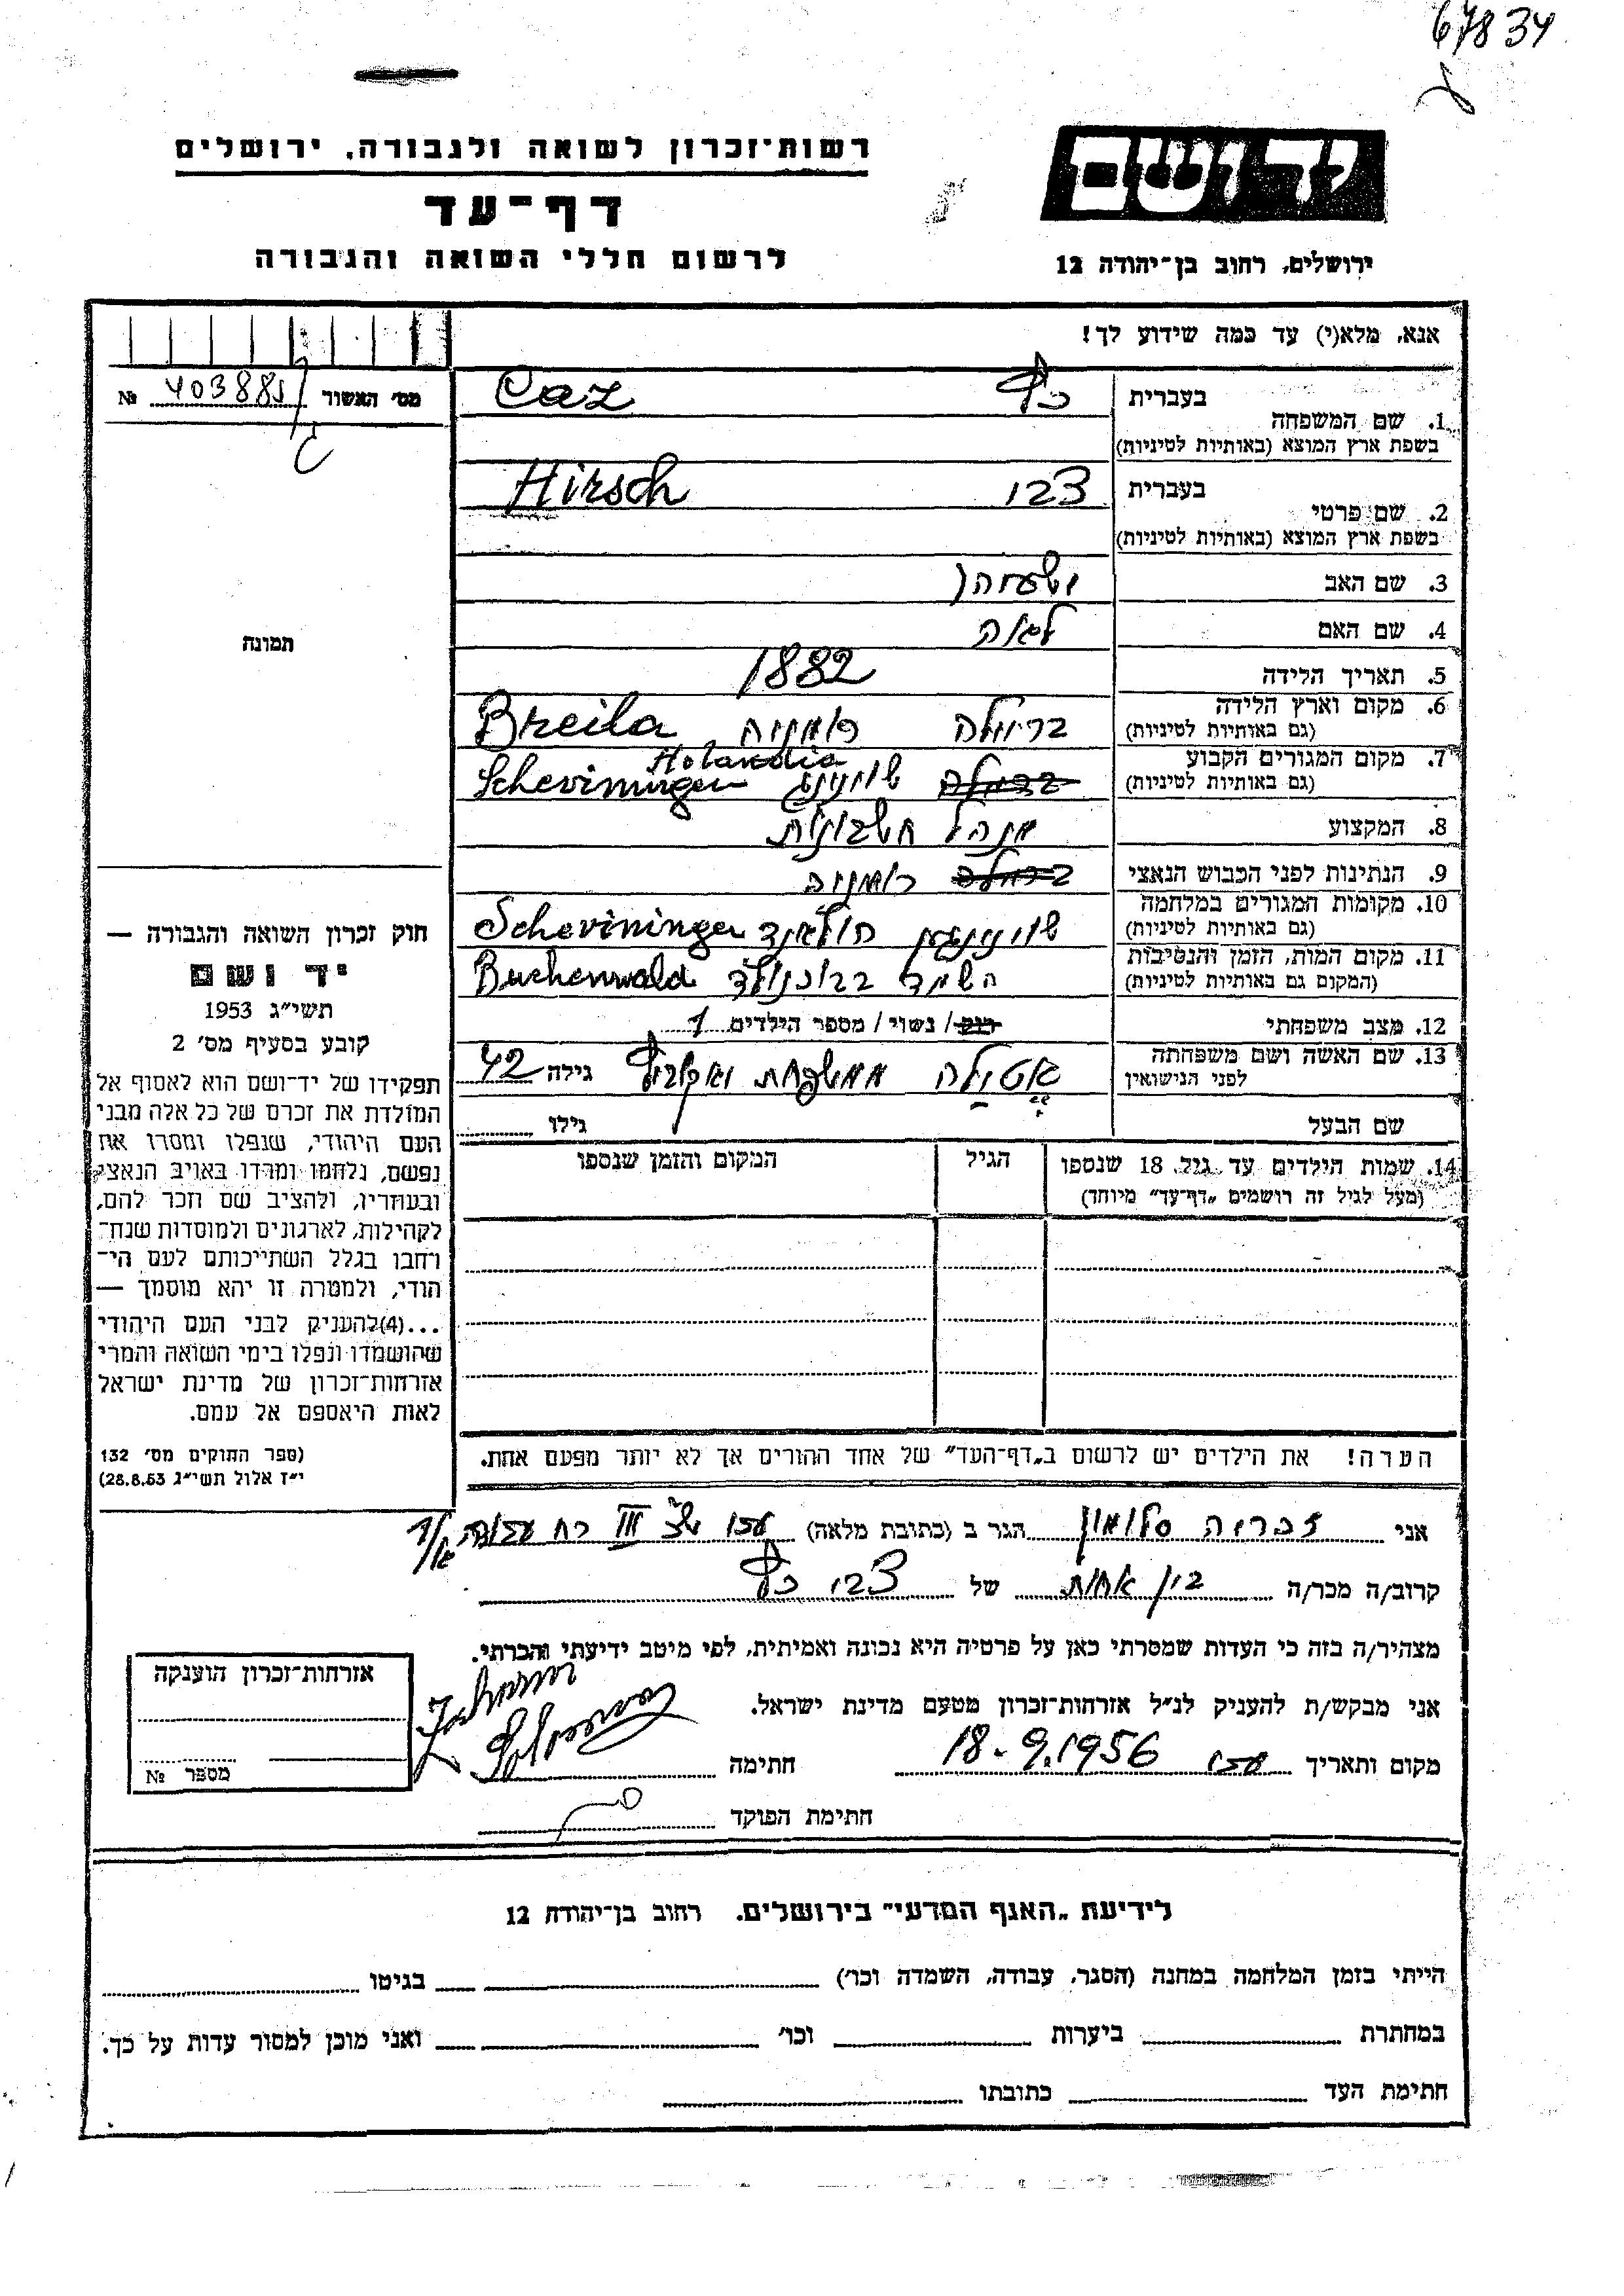 67834
רשות־זכרון לשואה ולגבורה, ירושלים
ידושם
דף־עד
לרשום חללי השואה והגבורה
ירושלים, רחוב בן־יהודה 12
אנא, מלא(י) עד כמה שידוע לך!
מס׳ האשור 403881 №
תמונה
1. שם המשפחה בעברית כץ Caz
בשפת ארץ המוצא (באותיות לטיניות)
2. שם פרטי בעברית צבי Hirsch
בשפת ארץ המוצא (באותיות לטיניות)
3. שם האב
4. שם האם לאה
5. תאריך הלידה 1882
6. מקום וארץ הלידה בריילה רומניה Breila
(גם באותיות לטיניות)
Holandia
7. מקום המגורים הקבוע בריילה Scheviningen
(גם באותיות לטיניות)
8. המקצוע מנהל חשבונות
9. הנתינות לפני הכבוש הנאצי רומניה
10. מקומות המגורים במלחמה הולאנד Scheviningen
(גם באותיות לטיניות)
11. מקום המות, הזמן והנסיבות השמד בבוכנולד Buchenwald
(המקום גם באותיות לטיניות)
12. מצב משפחתי רוק / נשוי / מספר הילדים 1
13. שם האשה ושם משפחתה אטילה ממשפחת גילה 42
לפני הנישואין
שם הבעל גילו
14. שמות הילדים עד גיל 18 שנספו הגיל המקום והזמן שנספו
(מעל לגיל זה רושמים „דף־עד״ מיוחד)
הערה! את הילדים יש לרשום ב„דף־העד״ של אחד ההורים אך לא יותר מפעם אחת.
חוק זכרון השואה והגבורה —
יד ושם
תשי״ג 1953
קובע בסעיף מס׳ 2
תפקידו של יד־ושם הוא לאסוף אל
המולדת את זכרם של כל אלה מבני
העם היהודי, שנפלו ומסרו את
נפשם, נלחמו ומרדו באויב הנאצי
ובעוזריו, ולהציב שם וזכר להם,
לקהילות, לארגונים ולמוסדות שנח־
רבו בגלל השתייכותם לעם הי־
הודי, ולמטרה זו יהא מוסמך —
...(4) להעניק לבני העם היהודי
שהושמדו ונפלו בימי השואה והמרי
אזרחות־זכרון של מדינת ישראל
לאות היאספם אל עמם.
(ספר החוקים מס׳ 132
י״ז אלול תשי״ג 28.8.53)
אני זכריה סלומון הגר ב (כתובת מלאה) עכו III
קרוב/ה מכר/ה בין אחות של צבי כץ
מצהיר/ה בזה כי העדות שמסרתי כאן על פרטיה היא נכונה ואמיתית, לפי מיטב ידיעתי והכרתי.
אני מבקש/ת להעניק לנ״ל אזרחות־זכרון מטעם מדינת ישראל.
מקום ותאריך עכו 18-9.1956 חתימה
חתימת הפוקד
אזרחות־זכרון הוענקה
מספר №
לידיעת „האגף המדעי״ בירושלים. רחוב בן־יהודה 12
הייתי בזמן המלחמה במחנה (הסגר, עבודה, השמדה וכו׳) בגיטו
במחתרת ביערות וכו׳ ואני מוכן למסור עדות על כך.
חתימת העד כתובתו